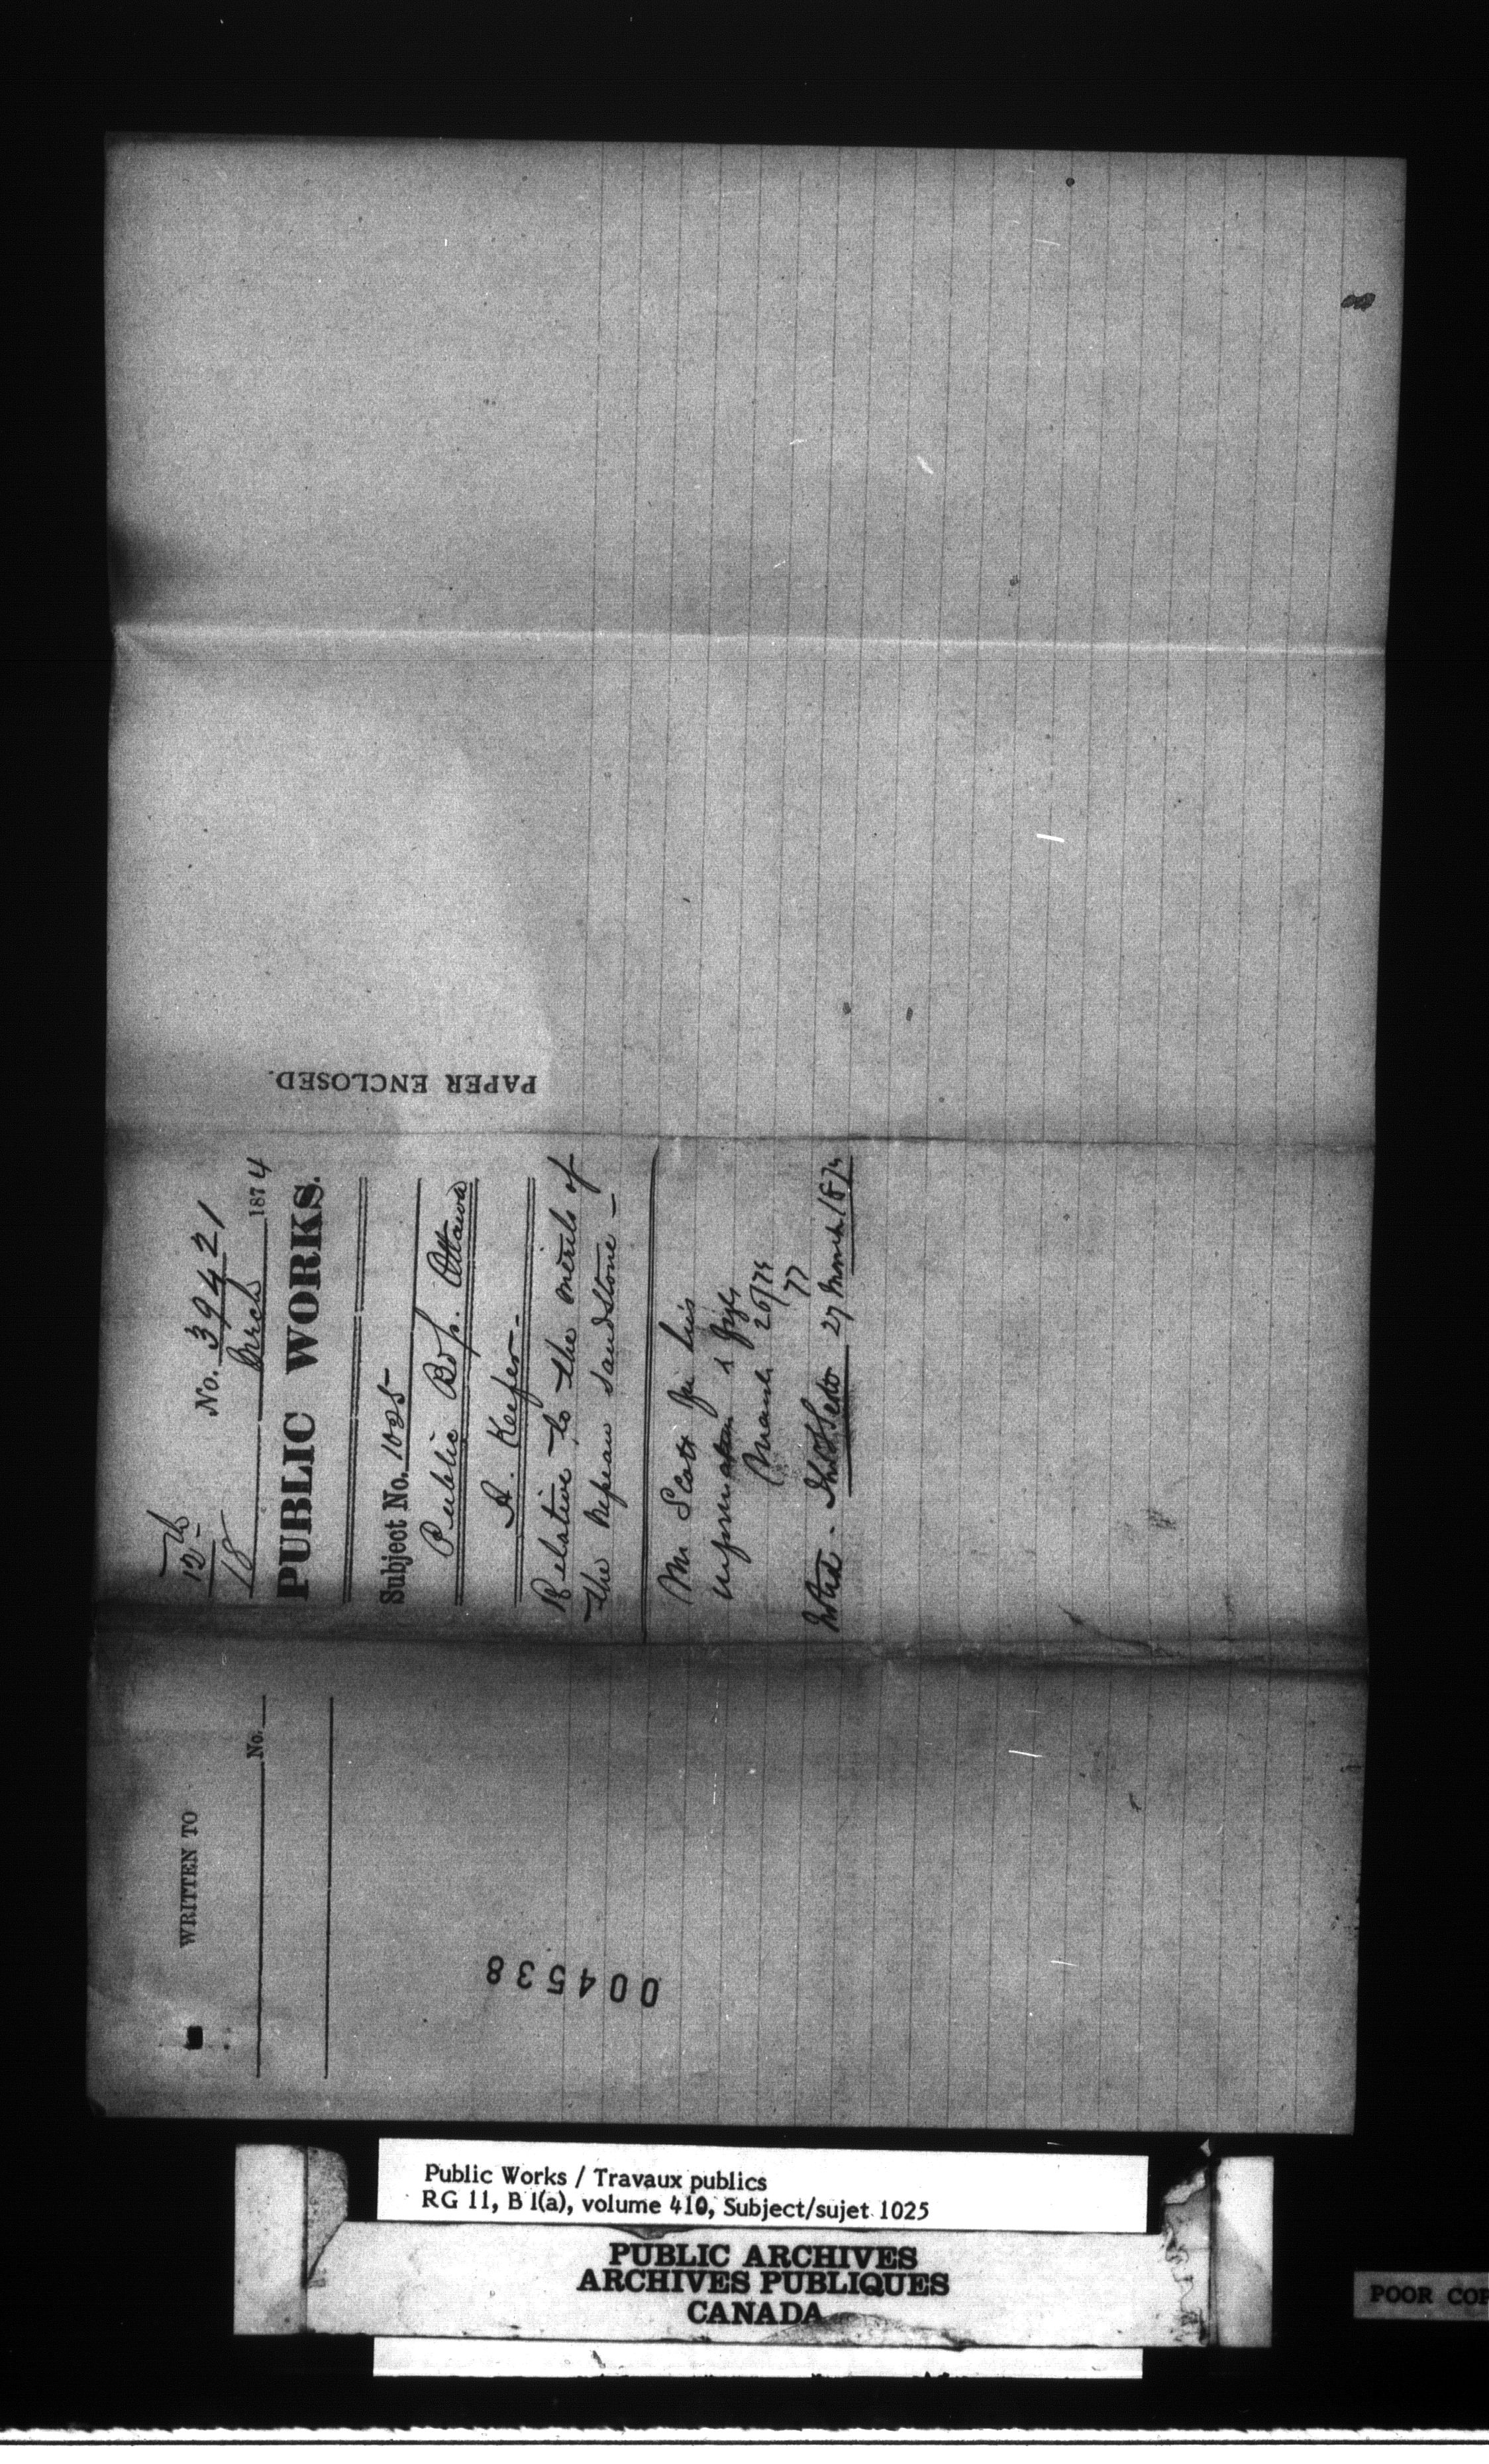 12
18
No. 39421
March 1874
PUBLIC WORKS.
Subject No. 1025
Public Bdgs. Ottawa
S. Keefer.
Relative to the merits of
the Nepean Sandstone -
Mr Scott for his
information &
March 26/74
Noted. 27 March 1874
PAPER ENCLOSED.
WRITTEN TO
No.
004538
Public Works / Travaux publics
RG 11, B 1(a), volume 410, Subject/sujet 1025
PUBLIC ARCHIVES
ARCHIVES PUBLIQUES
CANADA
POOR COP